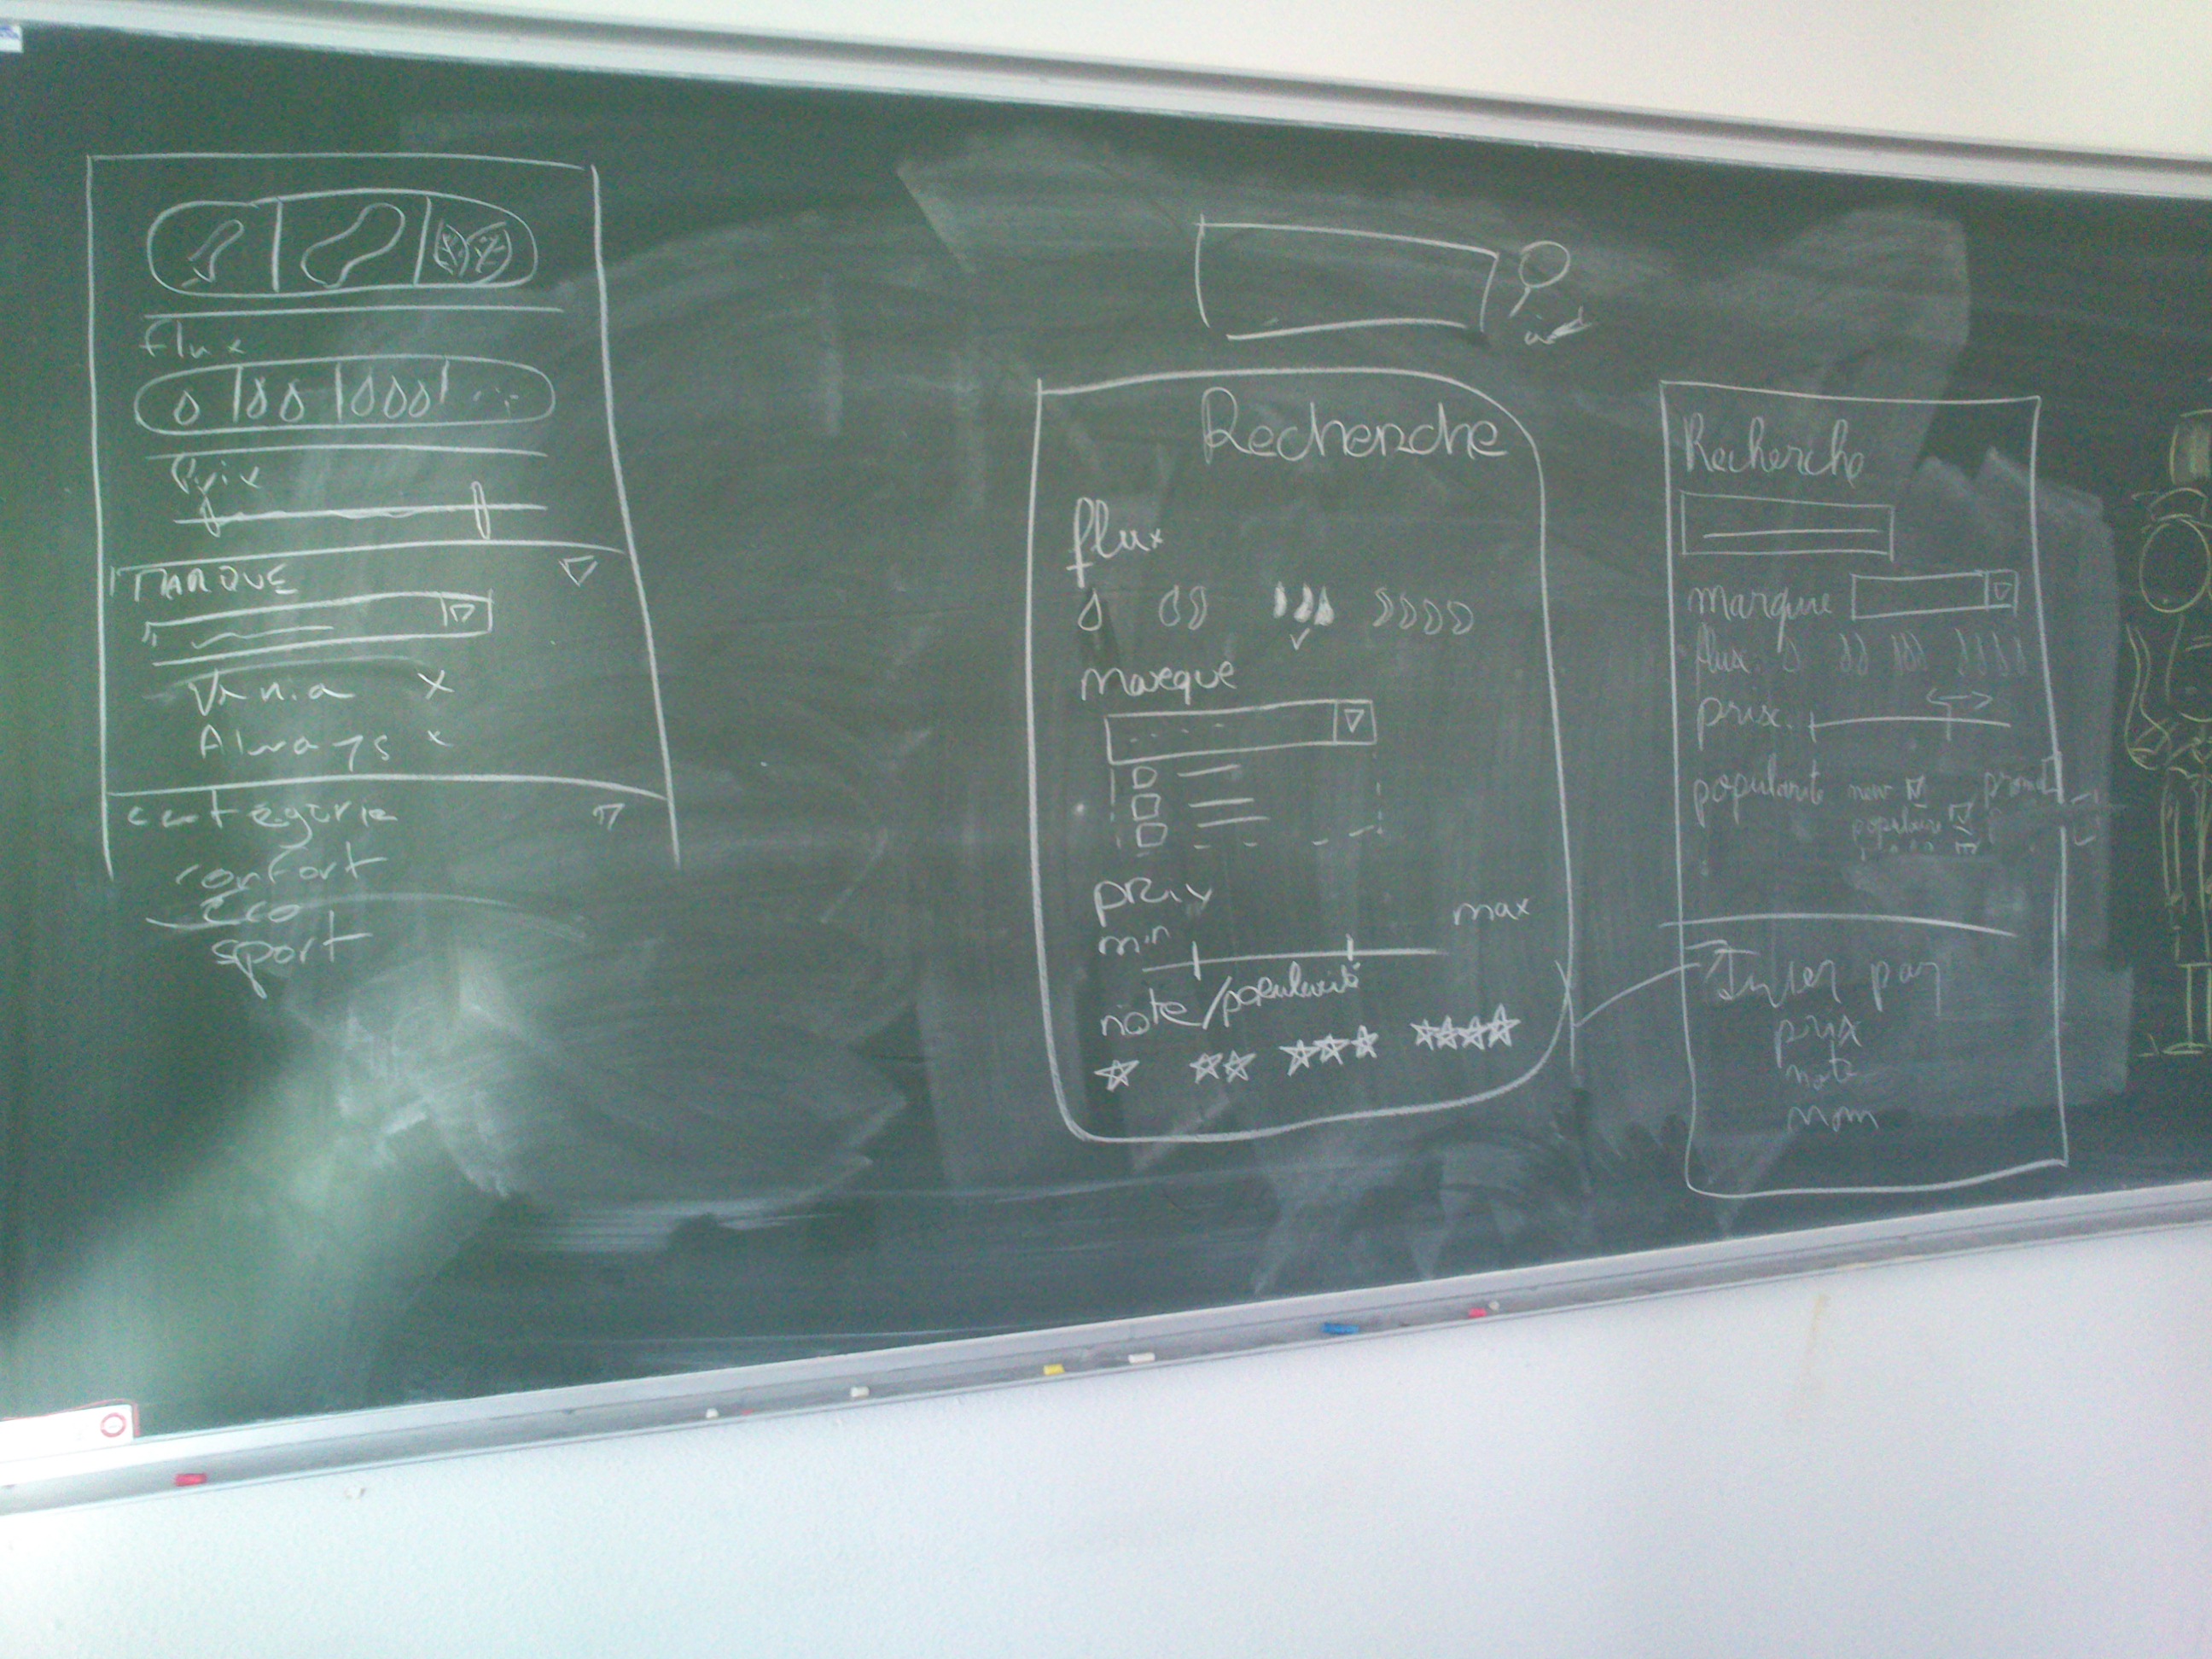 flux
Prix
MARQUE
Vania x
Always x
catégorie
confort
Eco
sport
Recherche
flux
marque
prix
min max
note/popularité
Recherche
marque
flux.
prix.
popularité new promo
populaire
par
prix
note
nom